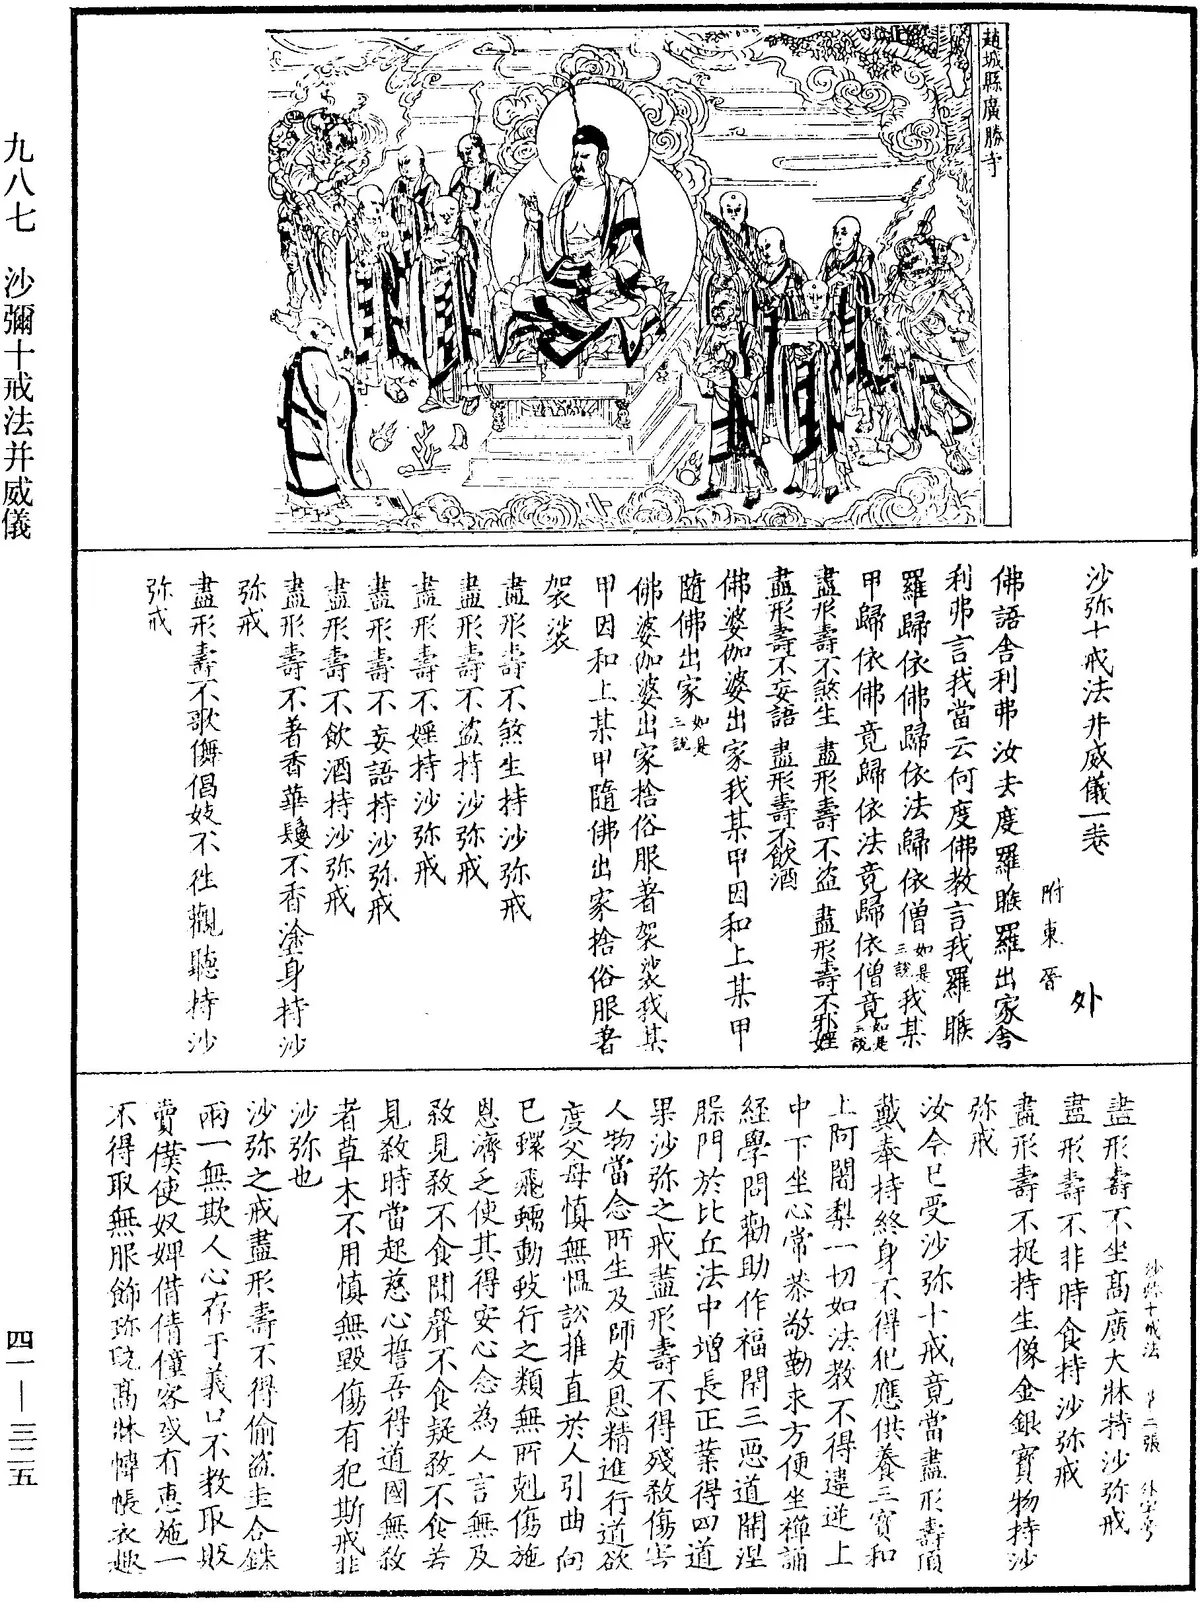 九八七　沙彌十戒法并威儀
四一—三二五
趙城縣廣勝寺
沙弥十戒法并威儀一卷
附東晉　外
佛語舍利弗汝去度羅睺羅出家舍
利弗言我當云何度佛教言我羅睺
羅歸依佛歸依法歸依僧如是三說我某
甲歸依佛竟歸依法竟歸依僧竟如是三說
盡形壽不煞生　盡形壽不盜　盡形壽不邪婬
盡形壽不妄語　盡形壽不飲酒
佛婆伽婆出家我某甲因和上某甲
隨佛出家如是三說
佛婆伽婆出家捨俗服著袈裟我某
甲因和上某甲隨佛出家捨俗服著
袈裟
盡形壽不煞生持沙弥戒
盡形壽不盜持沙弥戒
盡形壽不婬持沙弥戒
盡形壽不妄語持沙弥戒
盡形壽不飲酒持沙弥戒
盡形壽不著香華鬘不香塗身持沙
弥戒
盡形壽不歌儛倡妓不徃觀聽持沙
弥戒
盡形壽不坐高廣大牀持沙弥戒
沙弥十戒法　第二張　外字号
盡形壽不非時食持沙弥戒
盡形壽不捉持生像金銀寶物持沙
弥戒
汝今已受沙弥十戒竟當盡形壽頂
戴奉持終身不得犯應供養三寶和
上阿闍梨一切如法教不得違逆上
中下坐心常恭敬勤求方便坐禪誦
經學問勸助作福閉三惡道開涅
槃門於比丘法中增長正業得四道
果沙弥之戒盡形壽不得殘殺傷害
人物當念所生及師友恩精進行道欲
度父母慎無愠訟推直於人引曲向
已蠉飛蠕動蚑行之類無所剋傷施
恩濟乏使其得安心念為人言無及
殺見殺不食聞聲不食疑殺不食若
見殺時當起慈心誓吾得道國無殺
者草木不用慎無毀傷有犯斯戒非
沙弥也
沙弥之戒盡形壽不得偷盜圭合銖
兩一無欺人心存于義口不教取販
賣僕使奴婢借倩僮客或有惠施一
不得取無服飾珎玩高牀幃帳衣趣